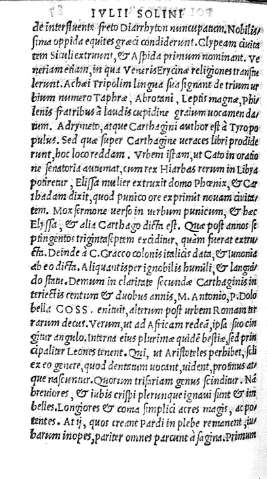 IVLII SOLINI
de interfluente freto Diarrhyton nuncupatum. Nobilis-
sima oppida equites græci condiderunt. Clypeam ciuita-
tem Siculi extruunt, & Aspida primum nominant. Ve
neriam etiam, in qua Veneris Erycinæ religiones transtu
lerunt. Achæi Tripolin lingua sua signant de trium ur
bium numero Taphræ, Abrotani, Leptis magnæ, Phi
lenis fratribus à laudis cupidine graium uocamen da-
tum. Adrymeto, atque Carthagini author est à Tyropo
pulus. Sed quæ super Carthagine ueraces libri prodide
runt, hoc loco reddam. Vrbem istam, ut Cato in oratio
ne senatoria autumat, cum rex Hiarbas rerum in Libya
potiretur, Elissa mulier extruxit domo Phœnix, & Car
thadam dixit, quod punico ore exprimit nouam ciuita-
tem. Mox sermone uerso in uerbum punicum, & hæc
Elyssa, & alia Carthago dicta est. Quæ post annos se
ptingentos trigintaseptem exciditur, quàm fuerat extru
cta. Deinde à C. Graccho colonis italicis data, & Iunonia
ab eo dicta. Aliquantisper ignobilis humili, & langui-
do statu. Demum in claritate secundæ Carthaginis in
teriectis centum & duobus annis, M. Antonio, P. Dolo
bella COSS. enituit, alterum post urbem Romam ter
rarum decus. Verum, ut ad Africam redeā, ipsa suo cin
gitur angulo. Interna eius plurimæ quidē bestiæ, sed prin
cipaliter Leones tenent. Qui, ut Aristoteles perhibet, soli
ex eo genere, quod dentatum uocant, uident, protinus at-
que nascuntur. Quorum trifariam genus scinditur. Nā
breuiores, & iubis crispi plerunque ignaui sunt & im
belles. Longiores & coma simplici acres magis, ac po
tentes. At ij, quos creant Pardi in plebe remanent, iu-
barum inopes, pariter omnes parcunt à sagina. Primum